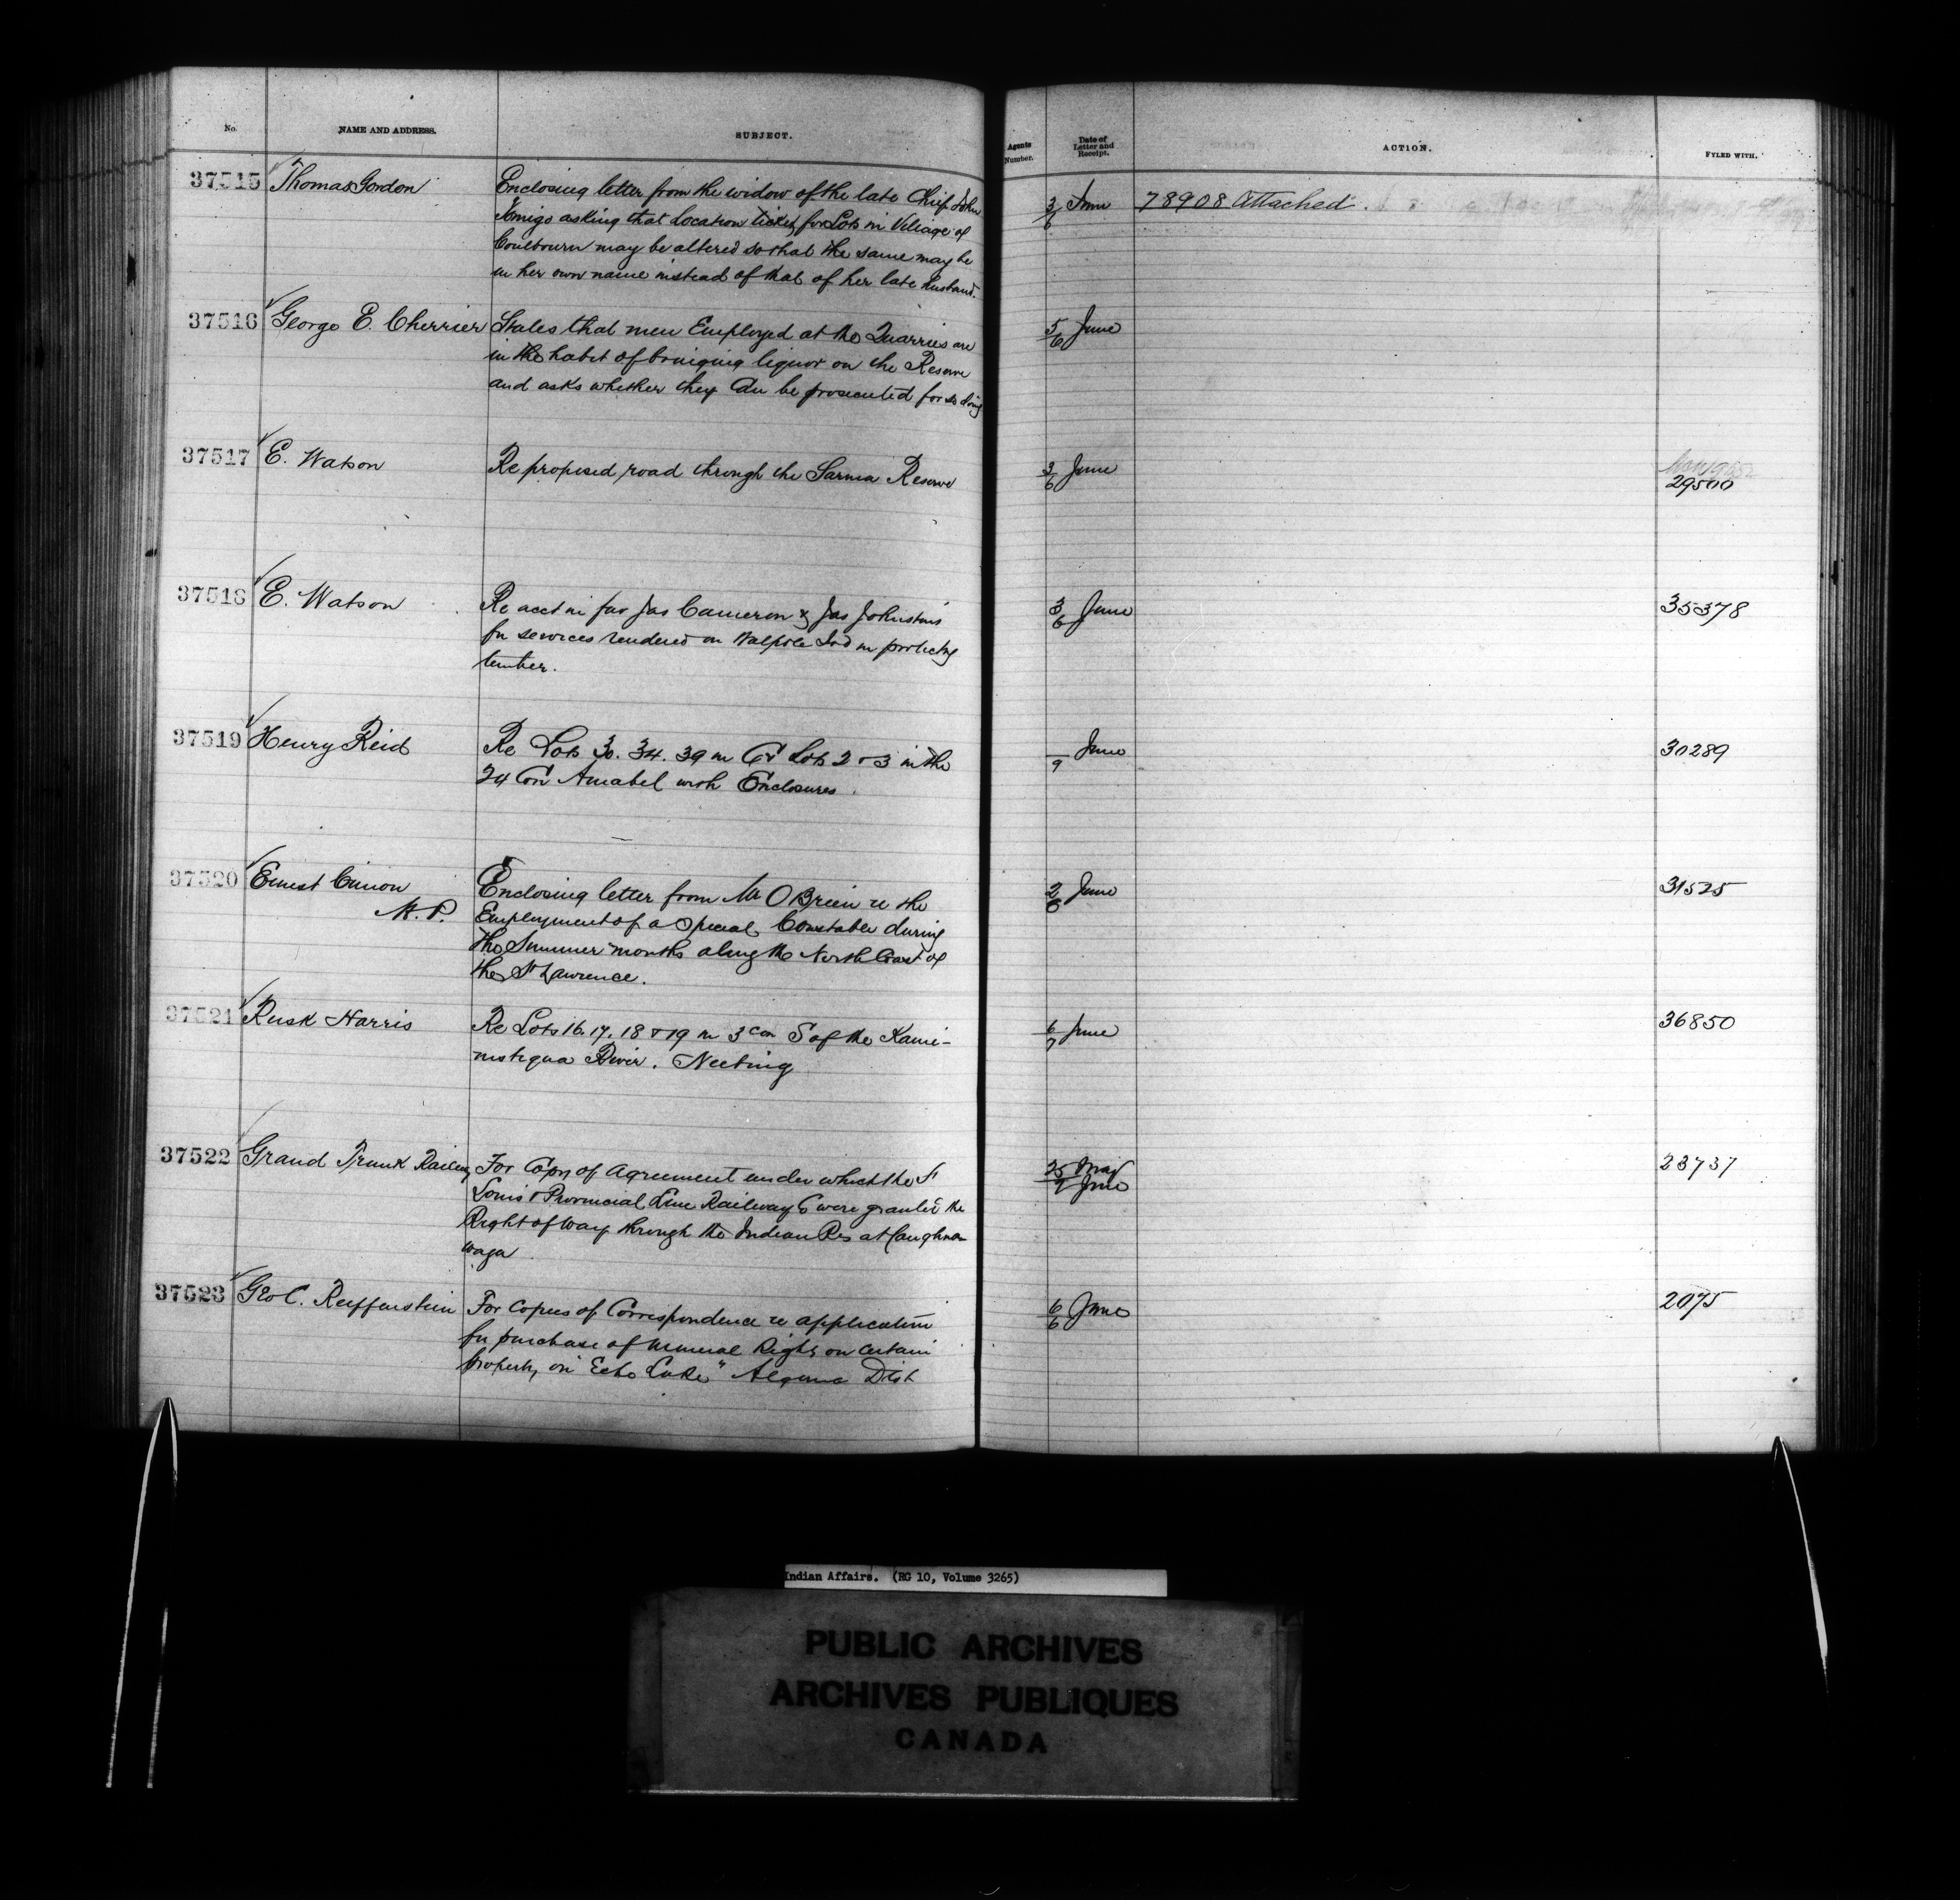 No. NAME AND ADDRESS. SUBJECT. Agents Number. Date of Letter and Receipt. ACTION. FYLED WITH.
37515 Thomas Gordon Enclosing letter from the widow of the late Chief John 3/6 June 78908 Attached.
asking that Location ticket for Lots in Village of
may be altered so that the same may be
in her own name instead of that of her late husband.
37516 George E. Cherrier States that men Employed at the Quarries are 5/6 June
in the habit of bringing liquor on the Reserve
and asks whether they Can be prosecuted for so doing
37517 E. Watson Re proposed road through the Sarnia Reserve 3/6 June 29500
37518 E. Watson Re acct in fav Jas Cameron & Jas Johnston's 3/6 June 35378
for services rendered on Walpole Isd in protecting
timber.
37519 Henry Reid Re Lots 30. 34. 39 in Lots 2 & 3 in the /9 June 30289
24 Con Amabel with Enclosures.
37520 Ernest Cimon Enclosing letter from Mr O'Brien re the 2/6 June 31525
M. P. Employment of a Special Constable during
the Summer months along the North Coast of
the St Lawrence.
37521 Rusk Harris Re Lots 16. 17. 18 & 19 in 3 con S of the Kami- 6/7 June 36850
nistiqua River. Neebing
37522 Grand Trunk Railway For Copy of Agreement under which the St 25 May 23737
Louis & Provincial Line Railway Co were granted the 7 June
Right of Way through the Indian Res at Caughna-
waga
37523 Geo C. Reiffenstein For Copies of Correspondence re application 6/6 June 2075
for purchase of Mineral Rights on Certain
property on "Echo Lake" Algoma Dist
Indian Affairs. (RG 10, Volume 3265)
PUBLIC ARCHIVES
ARCHIVES PUBLIQUES
CANADA